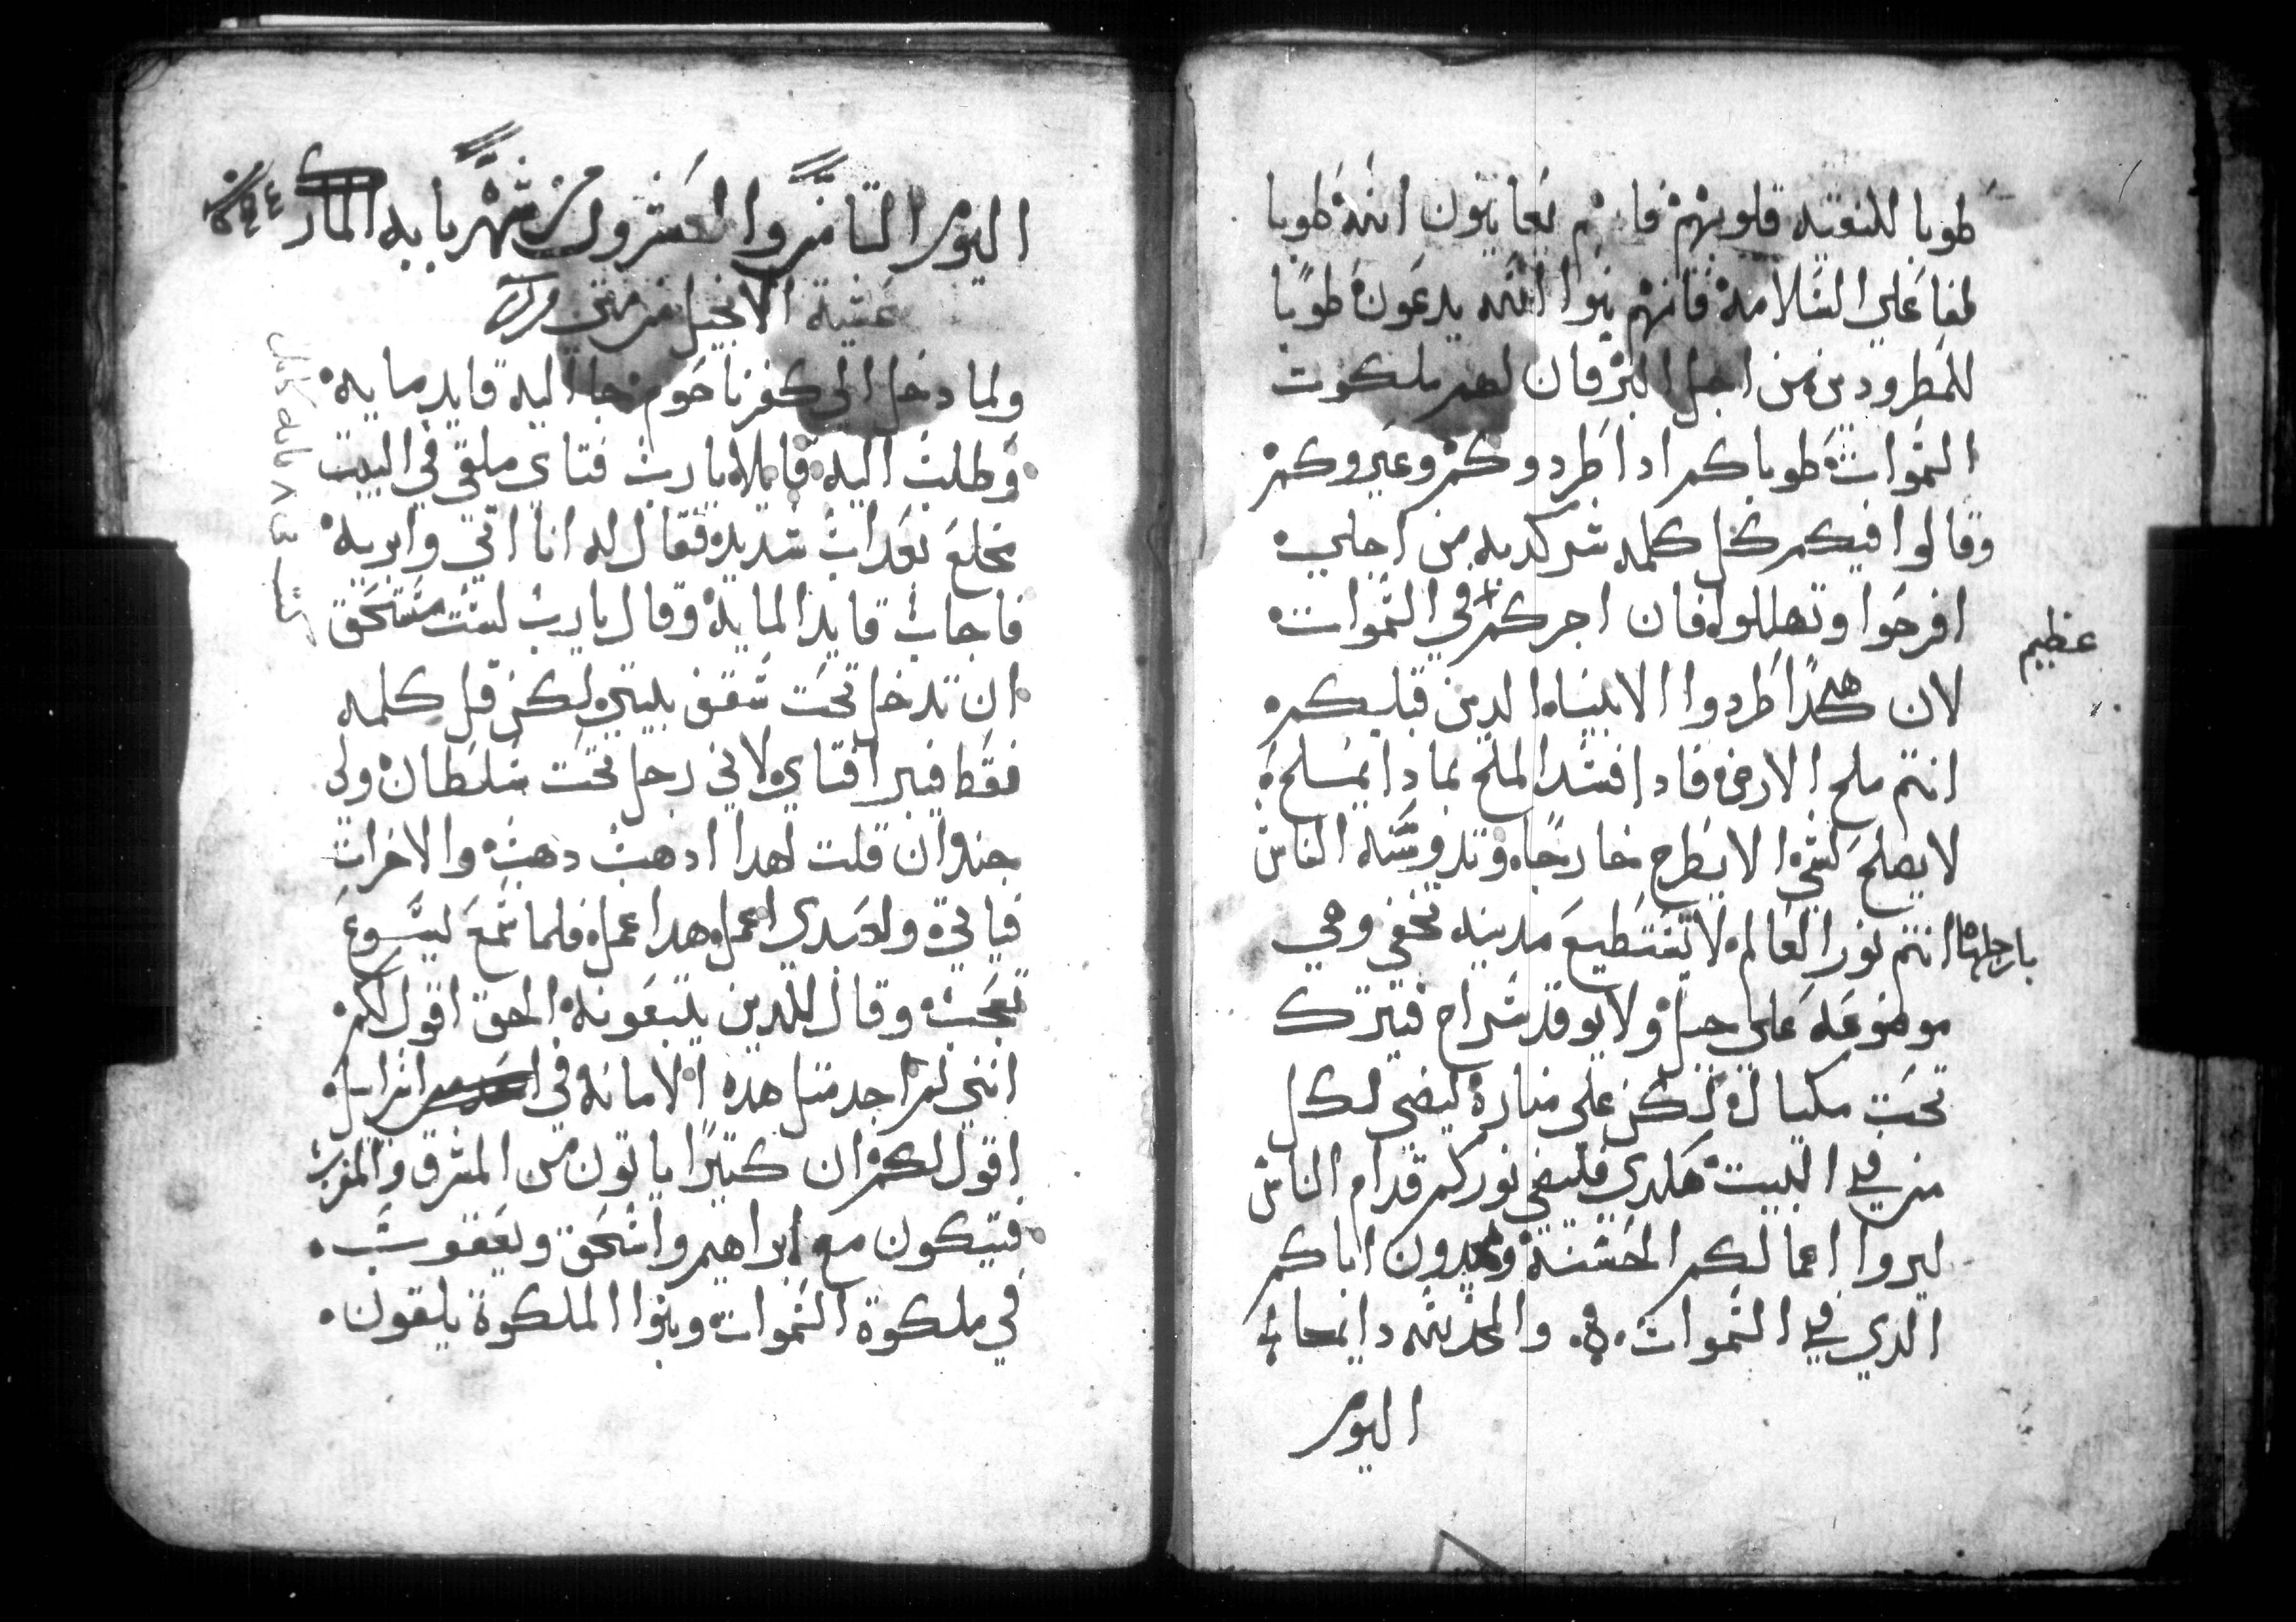 طوبا للنقيه قلوبهم فانهم يعاينون الله طوبا
لفاعلي السلامة فانهم بنوا الله يدعون طوبا
للمطرودين من اجل البر فان لهم ملكوت
السموات طوباكم ادا طردوكم وعيروكم
وقالوا فيكم كل كلمه شر كدبه من اجلي
افرحوا وتهللوا فان اجركم في السموات
عظيم
لان هكدا طردوا الانبياء الدين قبلكم
انتم ملح الارض فادا فسد الملح بمادا يملح
لا يصلح لشي الا يطرح خارجا وتدوسه الناس
بارجلها انتم نور العالم لا تستطيع مدينه تخفي وهي
موضوعه علي جبل ولا يوقد سراج فيترك
تحت مكيال لكن على منارة ليضي لكل
من في البيت هكدي فليضي نوركم قدام الناس
ليروا اعمالكم الحسنة ويمجدون اباكم
الدي في السموات والمجد لله دايما
اليوم
اليوم التامن والعشرون من شهر بابه المبارك
عشية الانجيل من متى
ولما دخل الي كفرناحوم جا اليه قايد مايه
وطلب اليه قايلا يارب فتاي ملقي في البيت
مخلع بعداب شديد فقال له انا اتي وابريه
فاجاب قايد الماية وقال يارب لست مستحق
ان تدخل تحت سقف بيتي لكن قل كلمه
فقط فيبرا فتاي لاني رجل تحت سلطان ولي
جند وان قلت لهدا ادهب دهب والاخر ات
فياتي ولعبدي اعمل هدا عمل فلما سمع يسوع
تعجب وقال للدين يتبعونه الحق اقول لكم
انني لم اجد متل هده الامانه في اسراييل
اقول لكم ان كتيرا ياتون من المشرق والمغرب
فيتكون مع ابراهيم واسحق ويعقوب
في ملكوة السموات وبنوا الملكوة يلقون